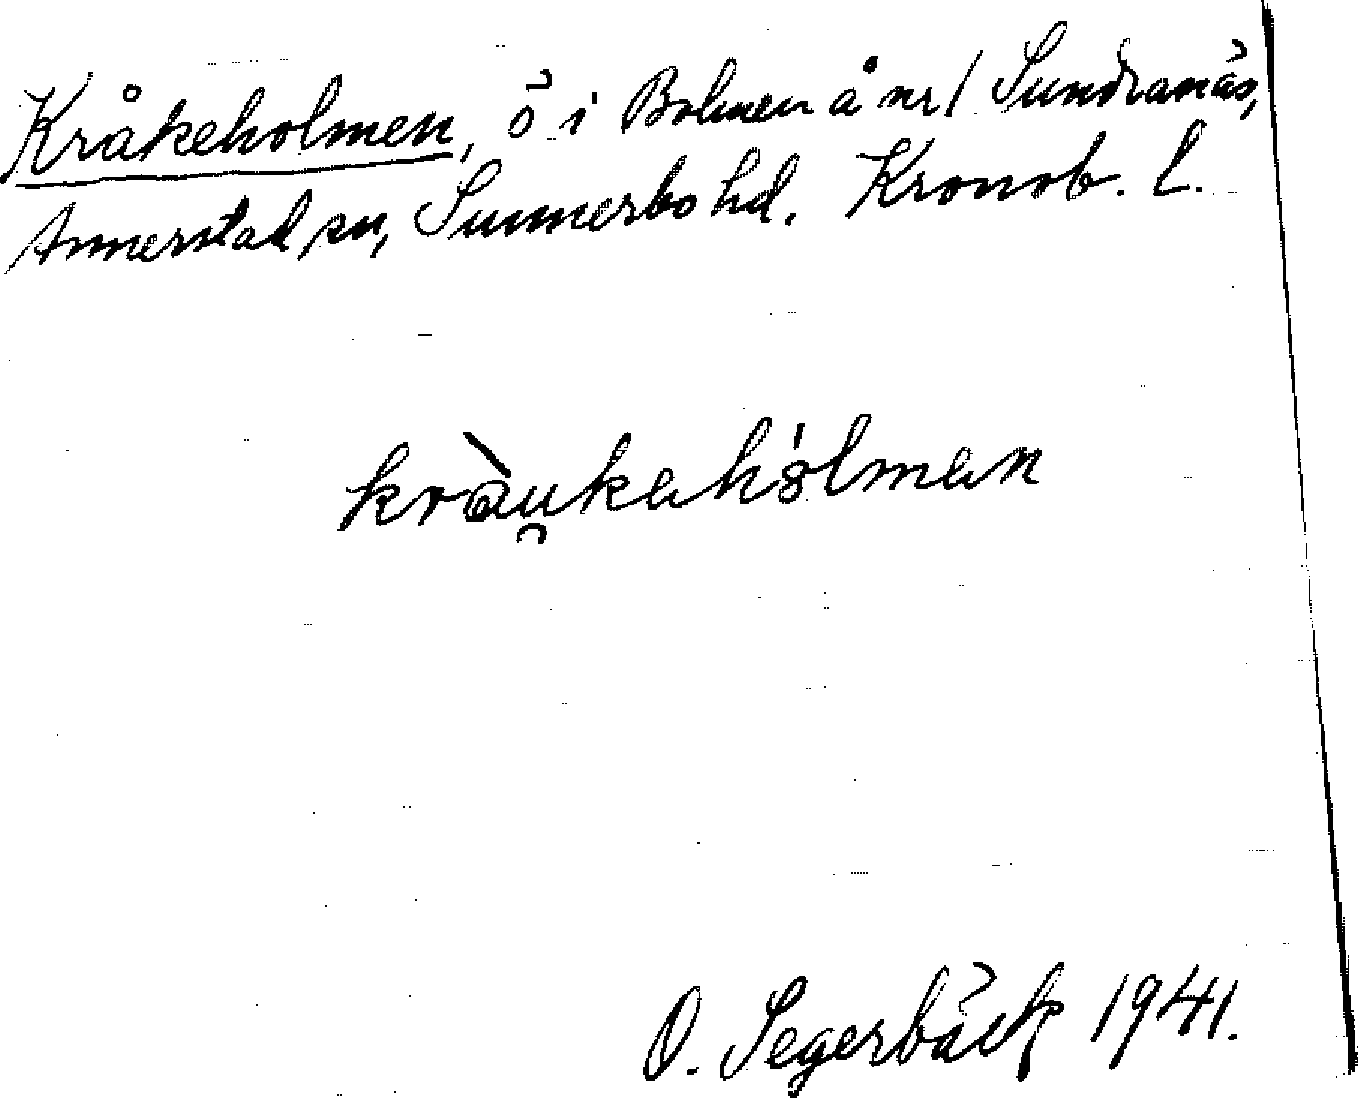 Kråkeholmen, ö i Bolmen å nr 1 Sundranäs,
Annerstad sn, Sunnerbo hd. Kronob. l.
kràu̯kahólman
O. Segerbäck 1941.